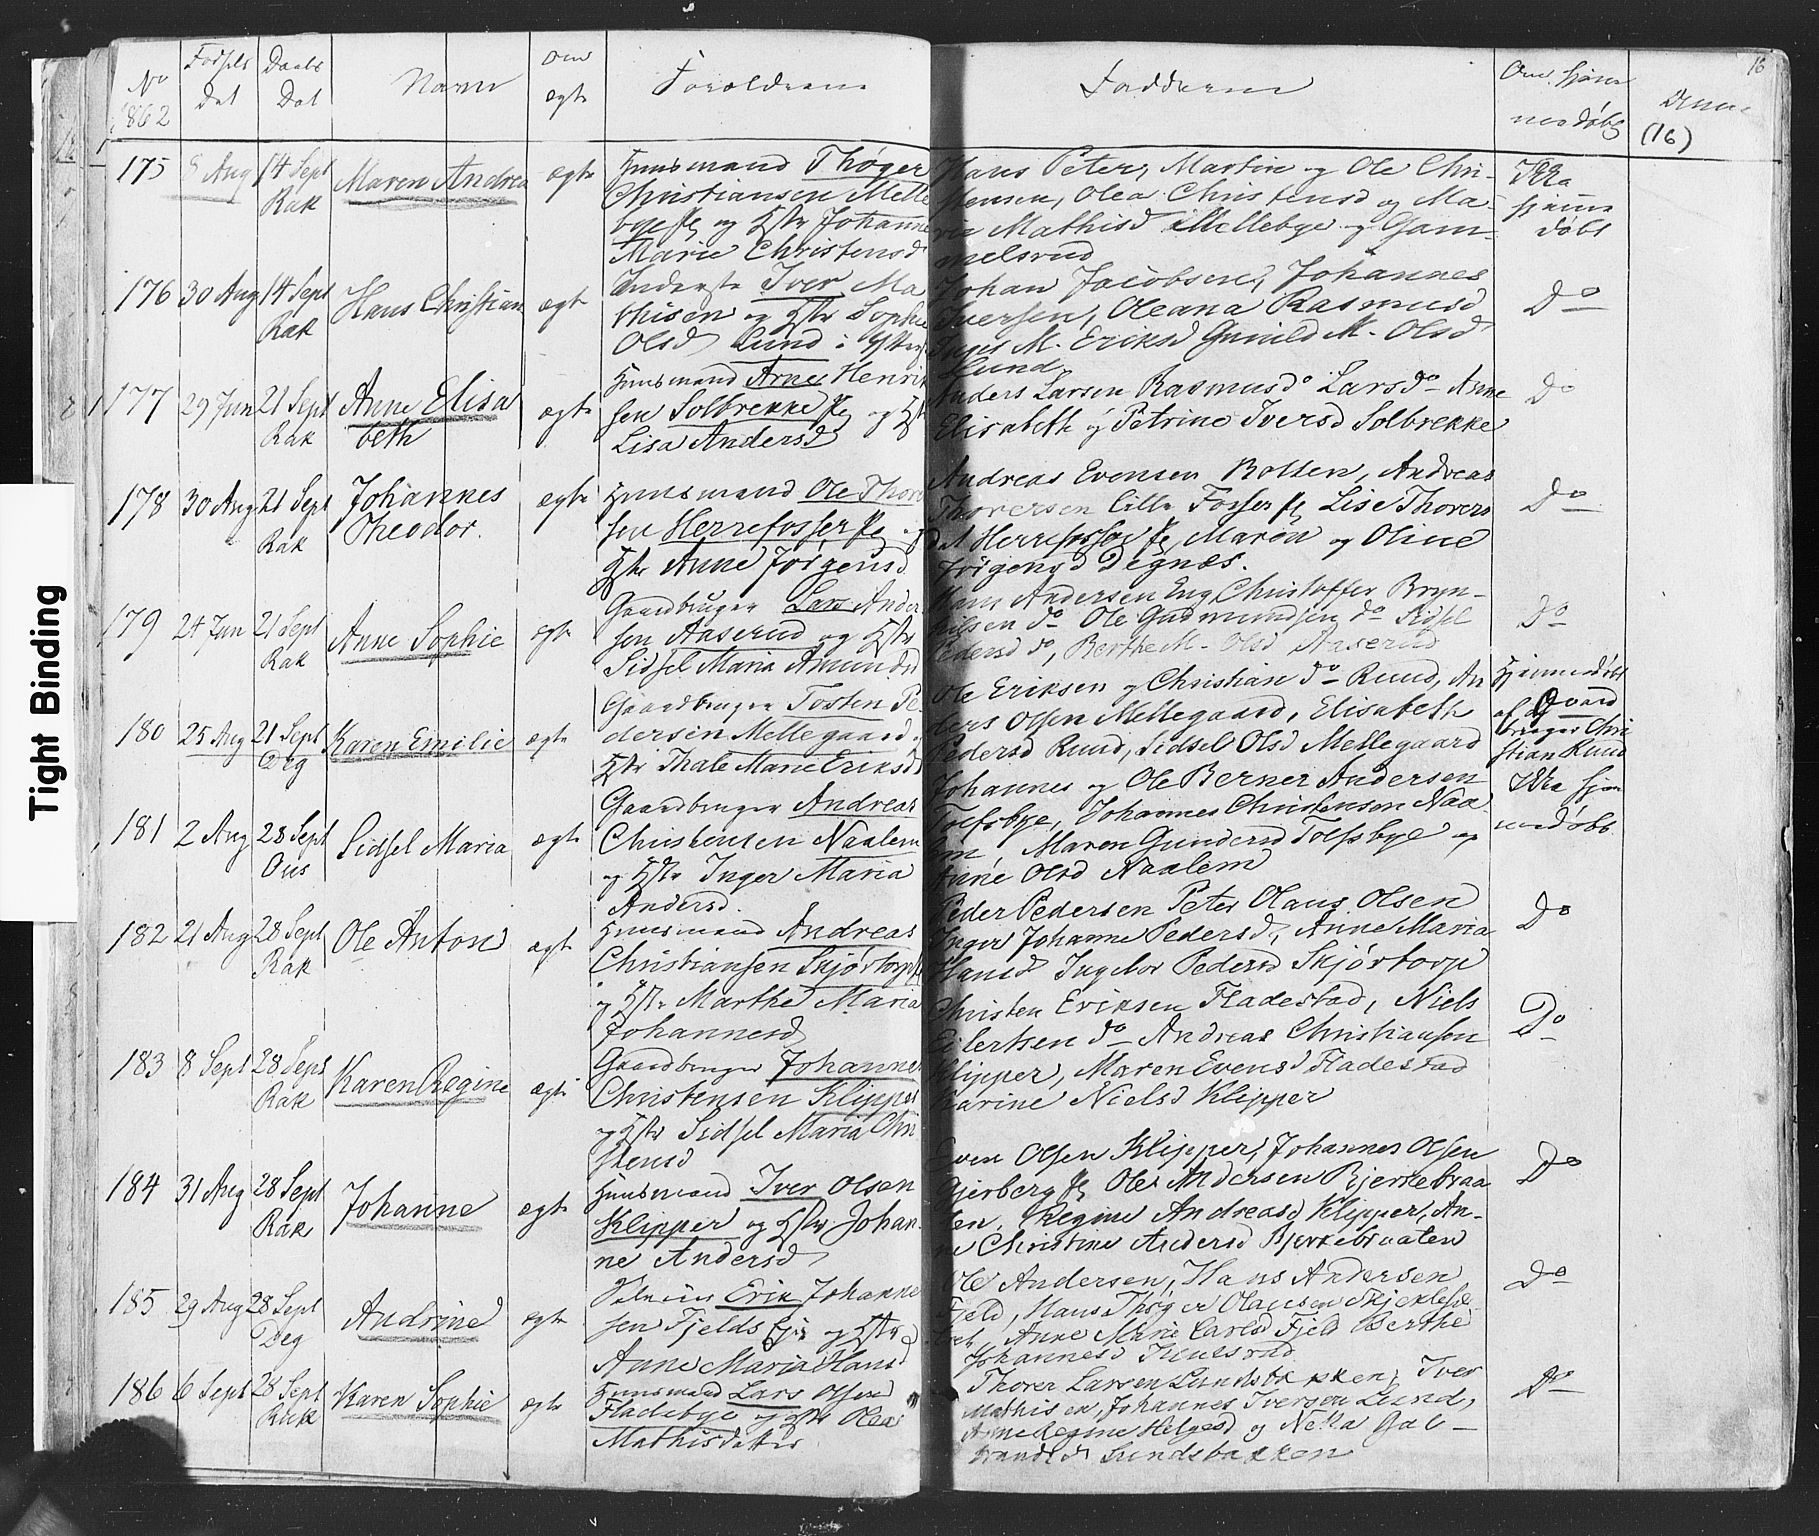 No 1862 Fødsels Dat Daabs Dat Navn om ægte Forældrene Faddere Om hjem- medøbt
16
(16)
175 8 Aug 14 Sept Rak Maren Andrea ægte
Huusmand Thøger
Christiansen Melle
bye og Hstr Johanne
Marie Christensd
Hans Peter, Martin og Ole Chri-
stensen, Olea Christensd og Ma-
rie Mathisd Mellebye og Gam-
melsrud
Ikke
hjemme
døbt
176 30 Aug 14 Sept Rak Hans Christian ægte
Inderste Iver Ma
thisen og Hstr Sophie
Olsd Lund i Ytter
Johan Jacobsen, Johannes
Iversen, Oleana Rasmusd
M. Eriksd Gunild M. Olsd
Lund
Do
177 29 Jun 21 Sept Rak Anne Elisa
beth ægte
Huusmand Arne Henrik
sen Solbrekke og Hstr
Lisa Andersd
Anders Larsen Rasmus do Lars do Anne
Elisabeth og Petrine Iversd Solbrekke
Do
178 30 Aug 21 Sept Rak Johannes
Theodor. ægte
Huusmand Ole Thor
sen Herrefosser og
Hstr Anne Jørgensd
Andreas Evensen Rolsen, Andreas
Thoresen Lille Fosser Lise Thorers
dat Herrefosser Maren og Oline
Jørgensd Degnæs.
Do
179 24 Jun 21 Sept Rak Anne Sophie ægte
Gaardbruger Lars Ander
sen Aaserud og Hstr
Sidsel Maria Amundsd
Hans Andersen Eng Christoffer Bryn-
hilsen do Ole Gudmundsen do Sidsel
Pedersd do, Berthe M. Olsd Aaserud
Do
180 25 Aug 21 Sept Deg Karen Emilie ægte
Gaardbruger Tosten Pe
dersen Mellegaard
Hstr Thale Marie Eriksd
Ole Eriksen og Christian do Ruud, An
ders Olsen Mellegaard, Elisabeth
Pedersd Ruud, Sidsel Olsd Mellegaard
Hjemmedøbt
af Gaard
bruger Chri
stian Ruud
181 2 Aug 28 Sept Ous Sidsel Maria ægte
Gaardbruger Andreas
Christensen Naalem
og Hstr Inger Maria
Andersd.
Johannes og Ole Berner Andersen
Tolfsbye, Johannes Christensen Naa
lem, Maren Gundersd Tolfsbye og
Anne Olsd Naalem
Ikke hjem
medøbt
182 21 Aug 28 Sept Rak Ole Anton ægte
Huusmand Andreas
Christiansen Skjørtorp
og Hstr Marthe Maria
Johannesd
Peder Pedersen Peter Olaus Olsen
Inger Johanne Pedersd, Anne Maria
Hansd Ingebor Pedersd Skjørtorp
Do
183 8 Sept 28 Sept Rak Karen Regine ægte
Gaardbruger Johannes
Christensen Klipper
og Hstr Sidsel Maria Chri
stensd
Christen Eriksen Fladestad, Niels
Eilertsen do Andreas Christiansen
Klipper, Maren Evensd Fladestad
Karine Nielsd Klipper
Do
184 31 Aug 28 Sept Rak Johanne ægte
Huusmand Iver Olsen
Klipper og Hstr Johan-
ne Andersd
Even Olsen Klipper, Johannes Olsen
Gjerberg Ole Andersen Bjerkebraa
ten, Regine Andreasd Klipper, An-
ne Christine Andersd Bjerkebraaten
Do
185 29 Aug 28 Sept Deg Andrine ægte
Erik Johanne
sen Fjelds Eje og Hstr
Anne Maria Hansd
Ole Andersen, Hans Andersen
Fjeld, Hans Thøger Olausen
Anne Marie Carlsd Fjeld Berthe
Johannesd
Do
186 6 Sept 28 Sept Rak Karen Sophie ægte
Huusmand Lars Olsen
Fladebye og Hstr Olea
Mathisdatter
Thorer Larsen Lundsbakken, Iver
Mathisen, Johannes Iversen Lund,
Anne Regine Helgesd og Neka Gul-
brandsd Lundsbakken
Do
Tight Binding